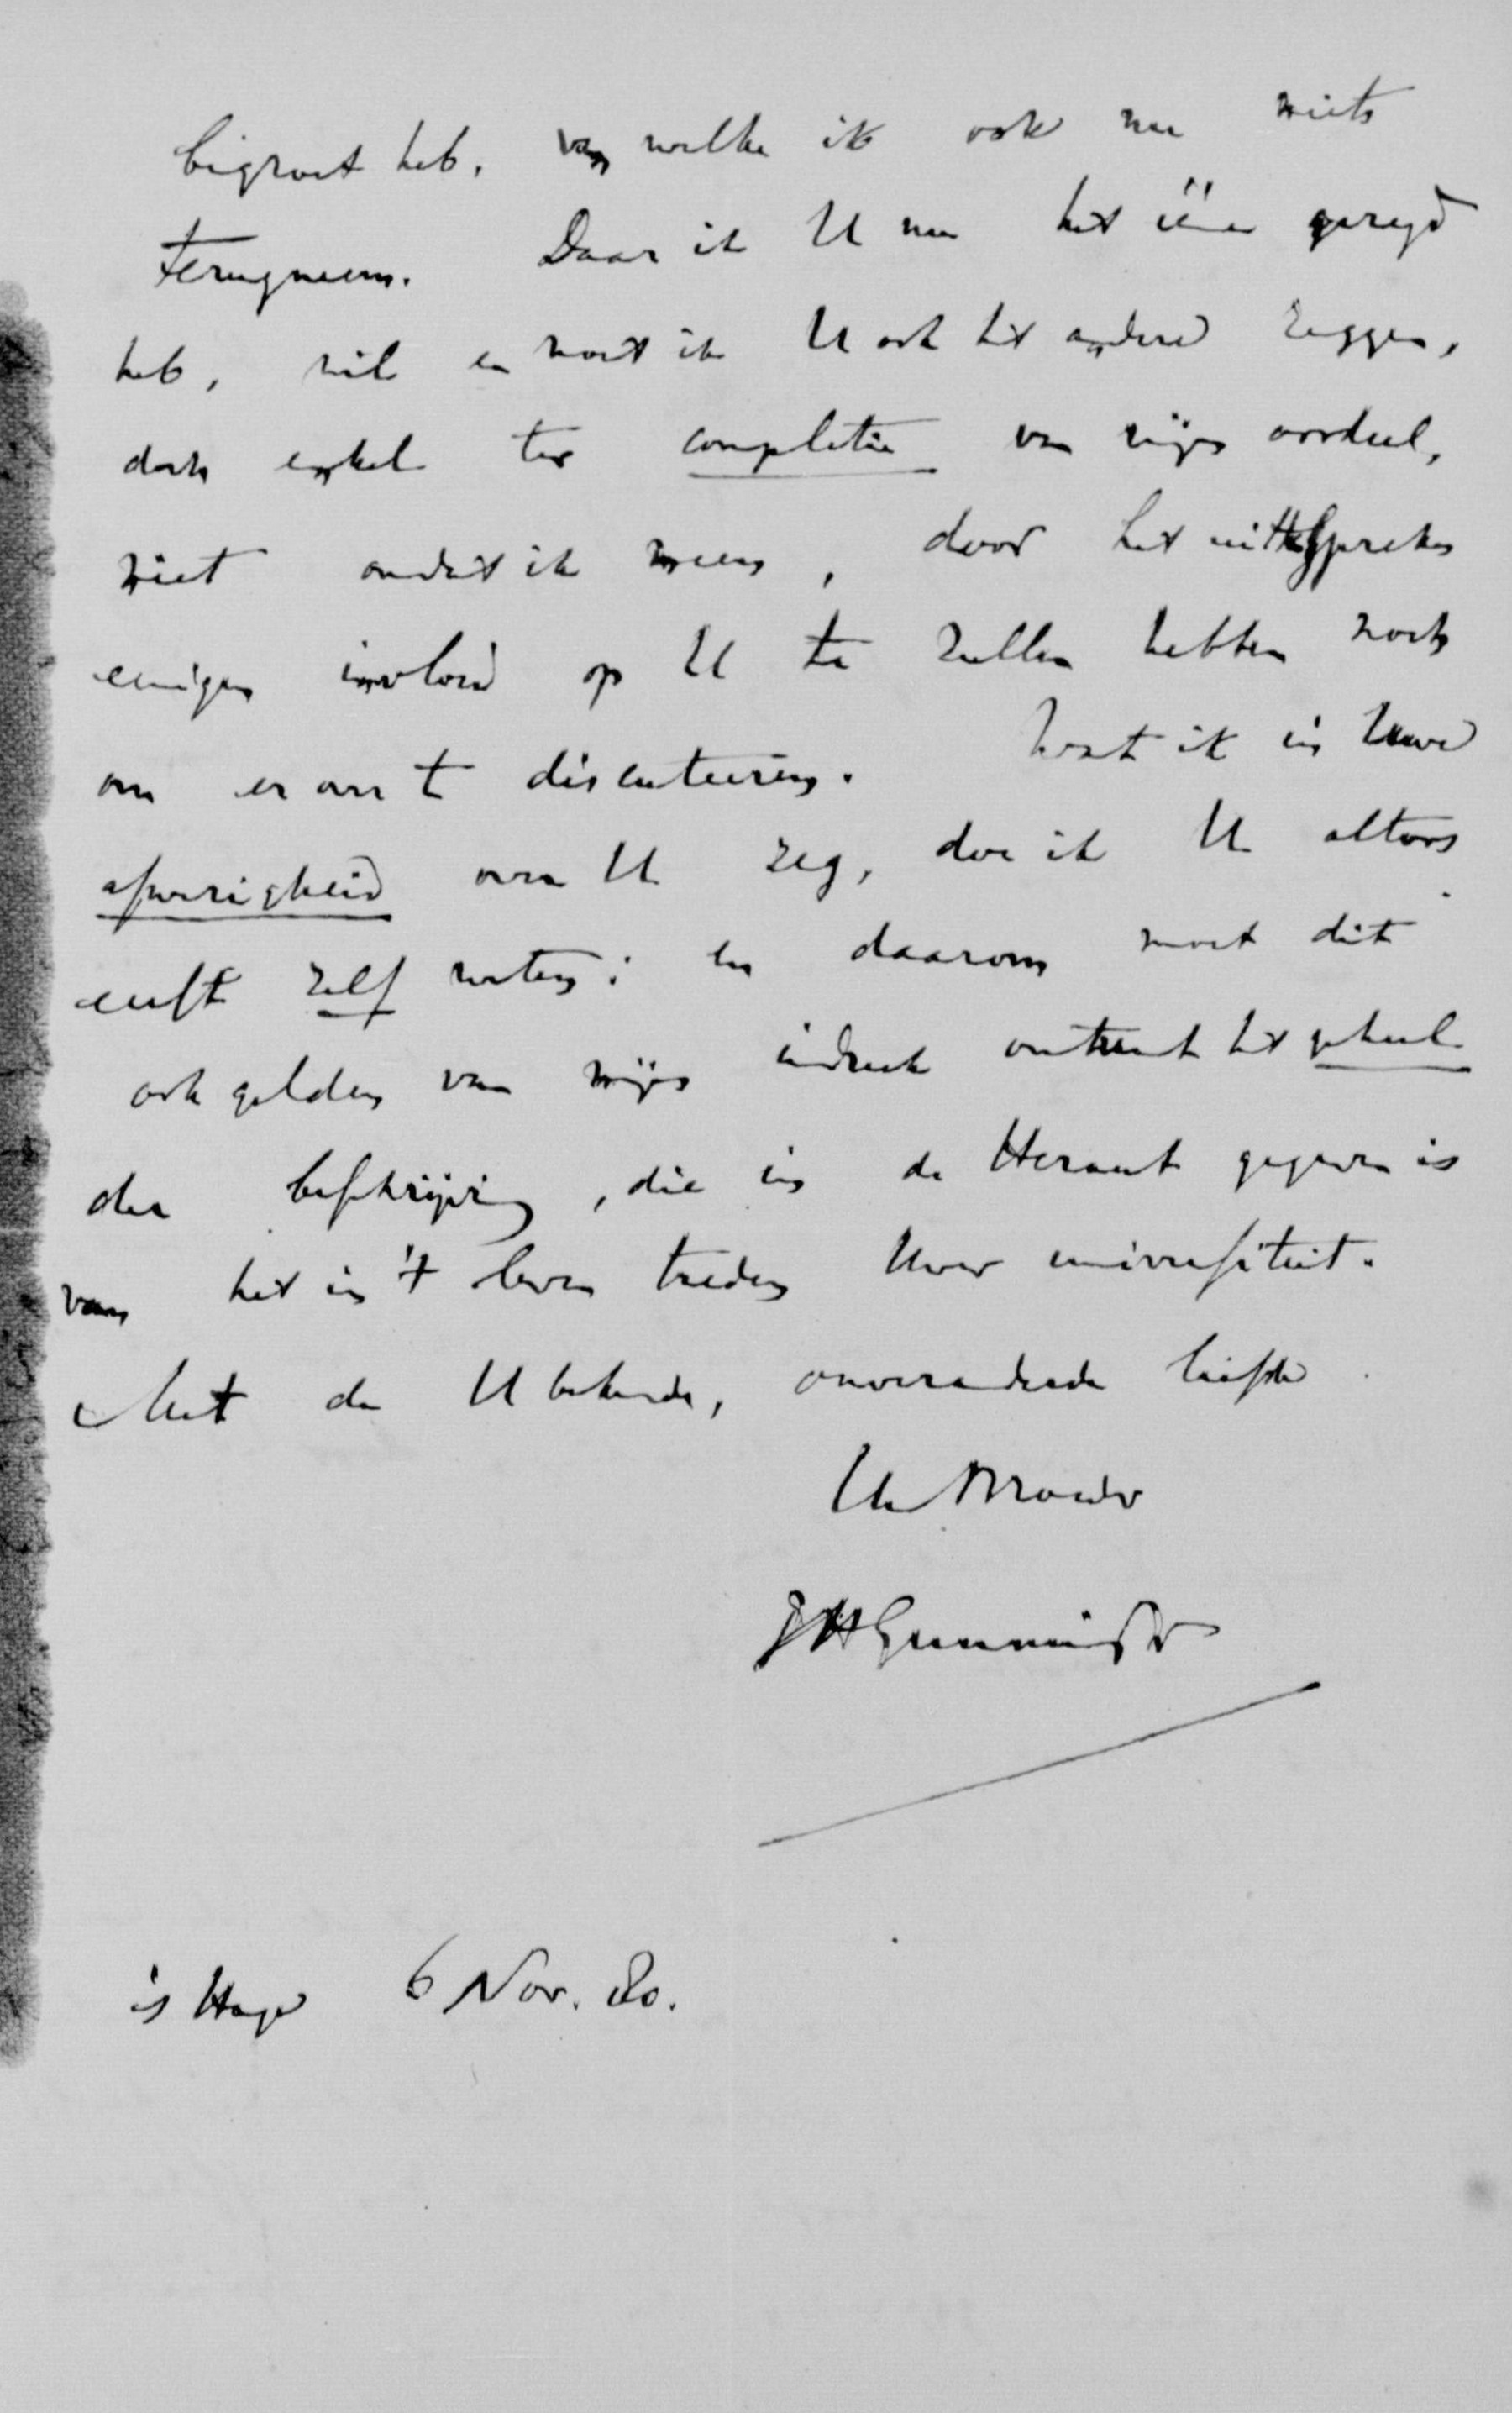 begroet heb, van welke ik ook nu niets
terugneem. Daar ik U nu het ééne gezegd
heb, wil en moet ik U ook het andere zeggen,
doch enkel ter completie van mijn oordeel,
niet omdat ik meen, door het uittespreken
eenigen invloed op U te zullen hebben noch
om er over te discuteeren. Wat ik in Uwe
afwezigheid over U zeg, doe ik U altoos
eerst zelf weten: en daarom moet dit
ook gelden van mijn indruk omtrent het geheel
der beschrijving, die in de Heraut gegeven is
van het in 't leven treden Uwer universiteit.
Met de U bekende, onveranderde liefde
Uw Broeder
JHGunningJr
's Hage 6 Nov. 80.